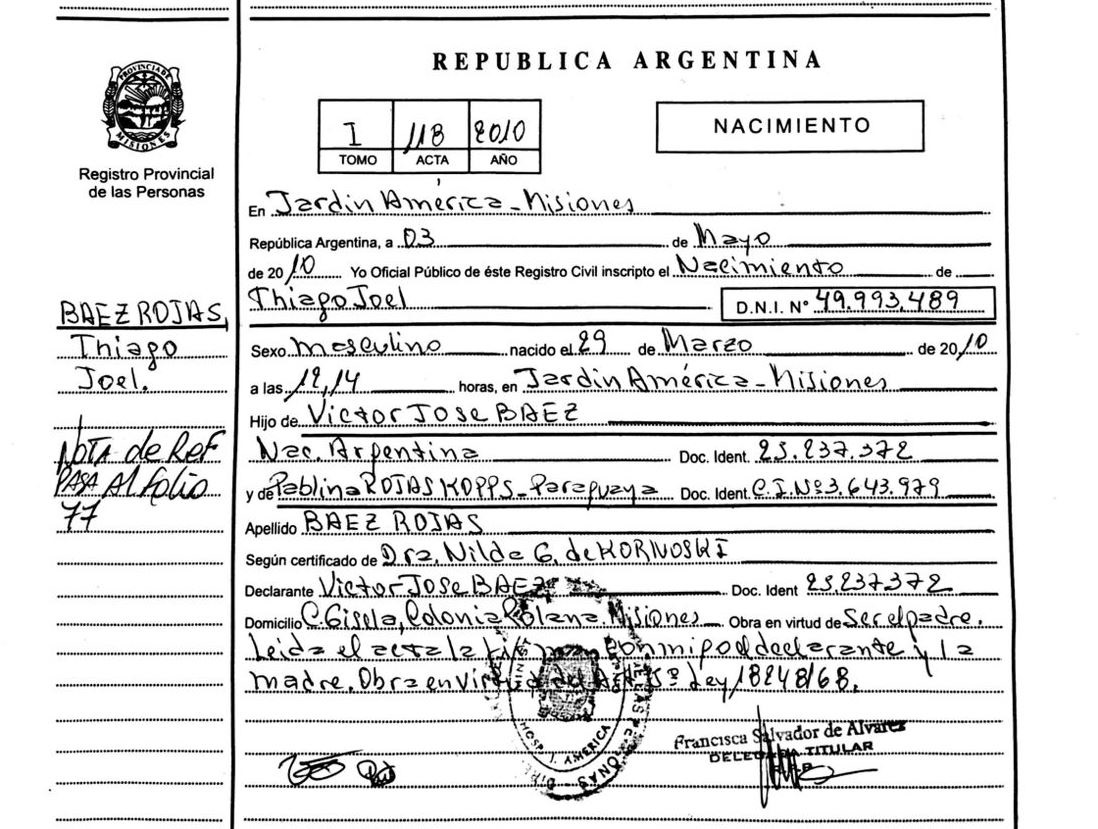 PROVINCIA DE
MISIONES
Registro Provincial
de las Personas
BAEZ ROJAS,
Thiago
Joel.
NOTA de REF
PASA Al folio
77
REPUBLICA ARGENTINA
I 118 2010
TOMO ACTA AÑO
NACIMIENTO
En Jardin América - Misiones
República Argentina, a 03 de Mayo
de 2010 Yo Oficial Público de éste Registro Civil inscripto el Nacimiento de
Thiago Joel D.N.I. N° 49.993.489
Sexo masculino nacido el 29 de Marzo de 2010
a las 12,14 horas, en Jardin América - Misiones
Hijo de Victor Jose BAEZ
Nac. Argentina Doc. Ident. 23.237.372
y de Pablina ROJAS KOPPS - Paraguaya Doc. Ident. C.I.Nº3.643.979
Apellido BAEZ ROJAS
Según certificado de Dra. Nilda G. de KORNOSKI
Declarante Victor Jose BAEZ Doc. Ident 23.237.372
Domicilio C. Gisela, Colonia Polana, Misiones Obra en virtud de Ser el padre.
Leida el acta la conmigo el declarante y la
madre. Obra en virtud del Art. 5º Ley 18248/68.
HOSP. J. AMERICA
Francisca Salvador de Alvarez
DELEGADA TITULAR